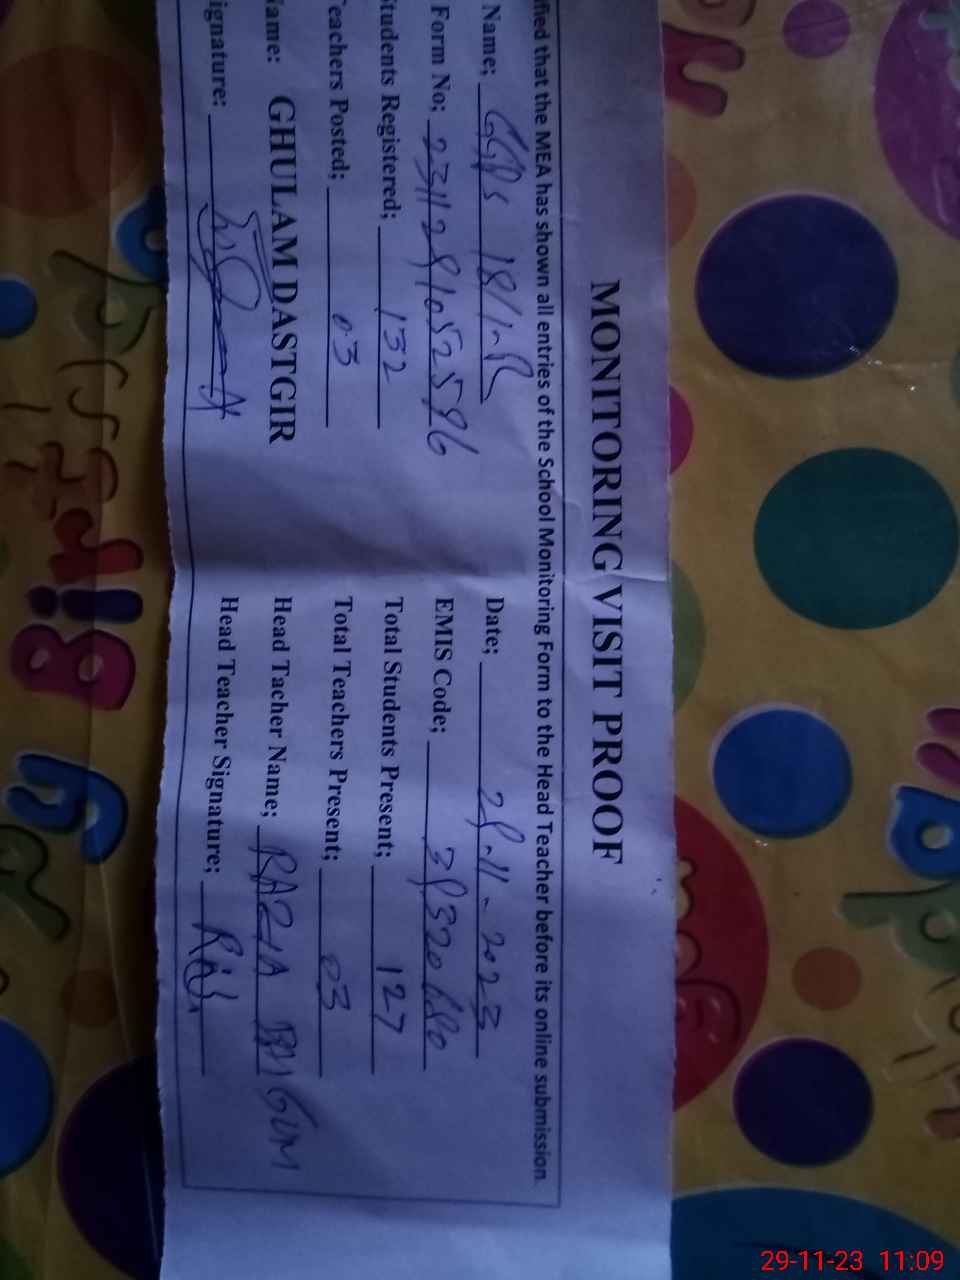 MONITORING VISIT PROOF
fied that the MEA has shown all entries of the School Monitoring Form to the Head Teacher before its online submission.
Name; GGPS 18/1-R Date; 28-11-2023
Form No; EMIS Code;
Students Registered; 132 Total Students Present; 127
Teachers Posted; 03 Total Teachers Present; 03
Name: GHULAM DASTGIR Head Tacher Name; RAZIA BAIGUM
ignature: Head Teacher Signature;
29-11-23 11:09